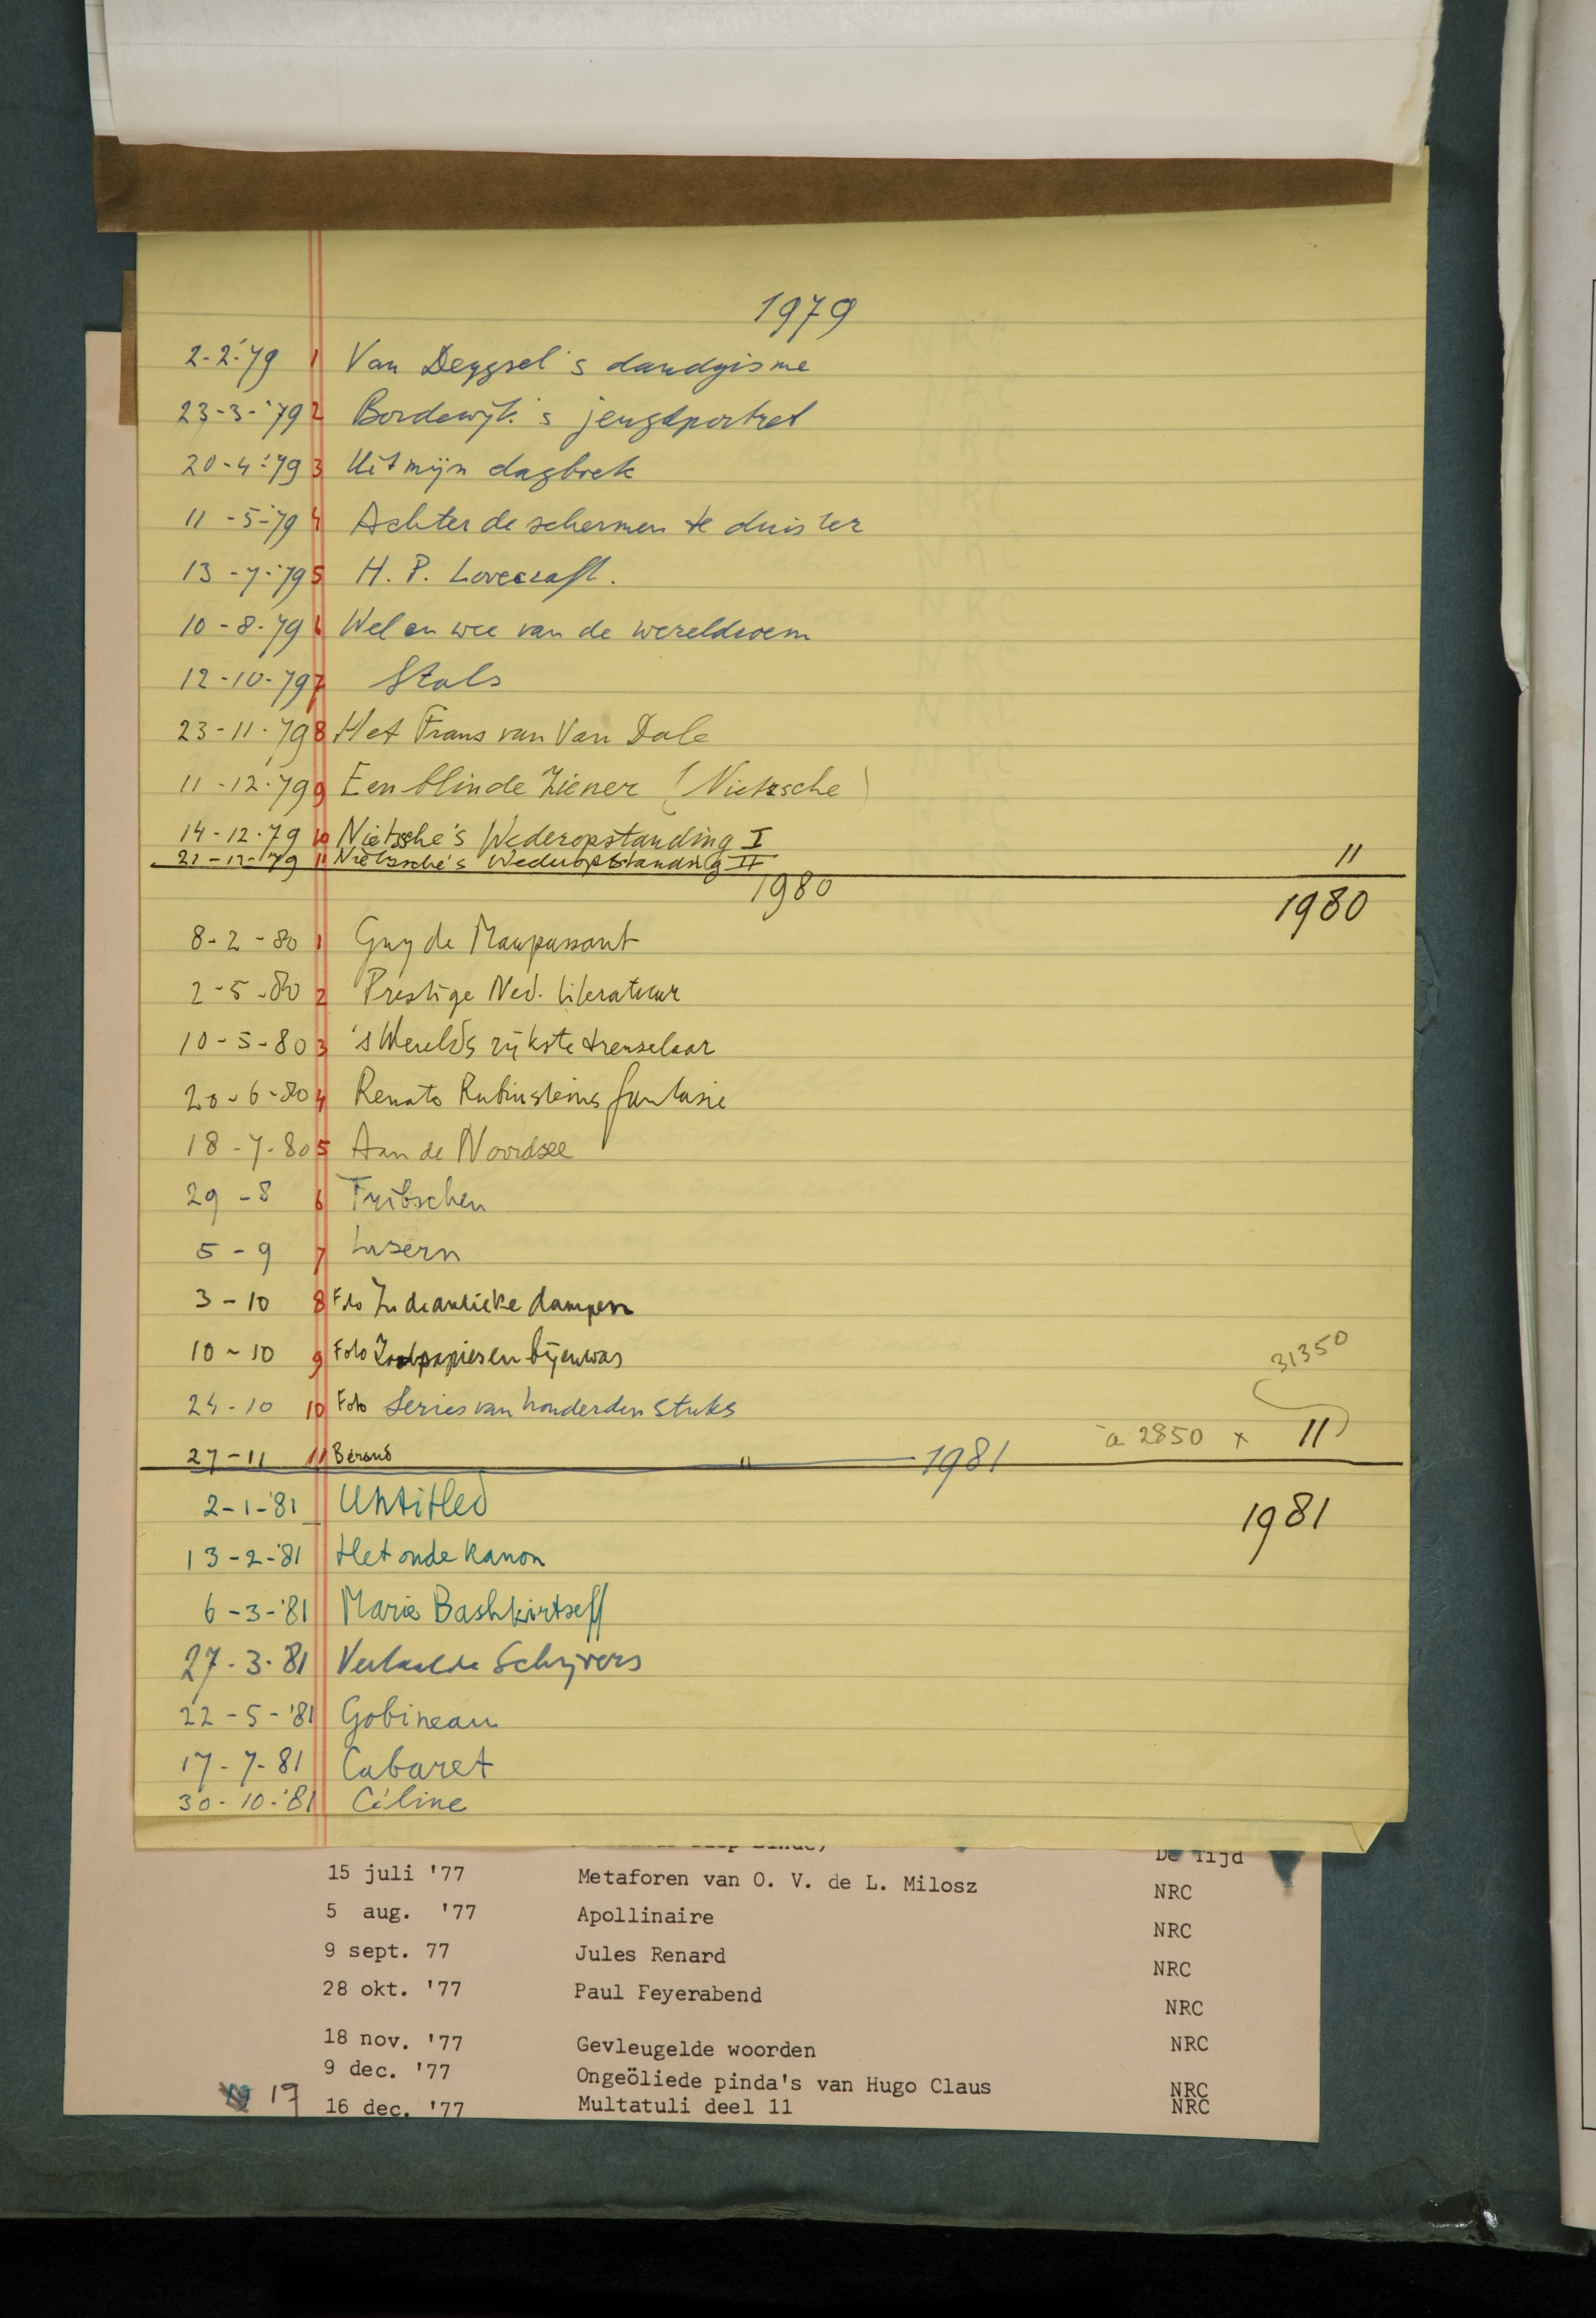 1979
2-2-'79 1 Van Deyssel's dandyisme
23-3-'79 2 Bordewijk's jeugdportret
20-4-'79 3 Uit mijn dagboek
11-5-'79 4 Achter de schermen te duister
13-7-'79 5 H. P. Lovecraft.
10-8-79 6 Wel en wee van de wereldroem
12-10-79 7 Stols
23-11-79 8 Het Frans van Van Dale
11-12-79 9 Een blinde Ziener (Nietzsche)
14-12-79 10 Nietzsche's Wederopstanding I
21-12-79 11 Nietzsche's Wederopstanding II 11
1980 1980
8-2-80 1 Guy de Maupassant
2-5-80 2 Prestige Ned. literatuur
10-5-80 3 's Werelds rijkste treuzelaar
20-6-80 4 Renate Rubinsteins fantasie
18-7-80 5 Aan de Noordzee
29-8 6 Tribschen
5-9 7 Luzern
3-10 8 Foto dampen
10-10 9 Foto bijenwas
31350
24-10 10 Foto Series van honderden stuks
à 2850 x 11
27-11 11 Béraud 11 1981
2-1-'81 Untitled 1981
13-2-'81 Het oude kanon
6-3-'81 Marie Bashkirtseff
27-3-'81 Schrijvers
22-5-'81 Gobineau
17-7-81 Cabaret
30-10-'81 Céline
De Tijd
15 juli '77 Metaforen van O. V. de L. Milosz NRC
5 aug. '77 Apollinaire NRC
9 sept. 77 Jules Renard NRC
28 okt. '77 Paul Feyerabend NRC
18 nov. '77 Gevleugelde woorden NRC
9 dec. '77 Ongeöliede pinda's van Hugo Claus NRC
17 16 dec. '77 Multatuli deel 11 NRC